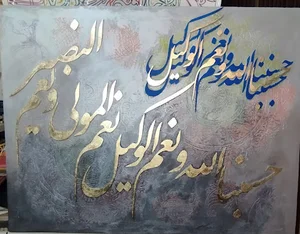 حسبنا الله ونعم الوكيل
حسبنا الله ونعم الوكيل
نعم المولى ونعم
النصير